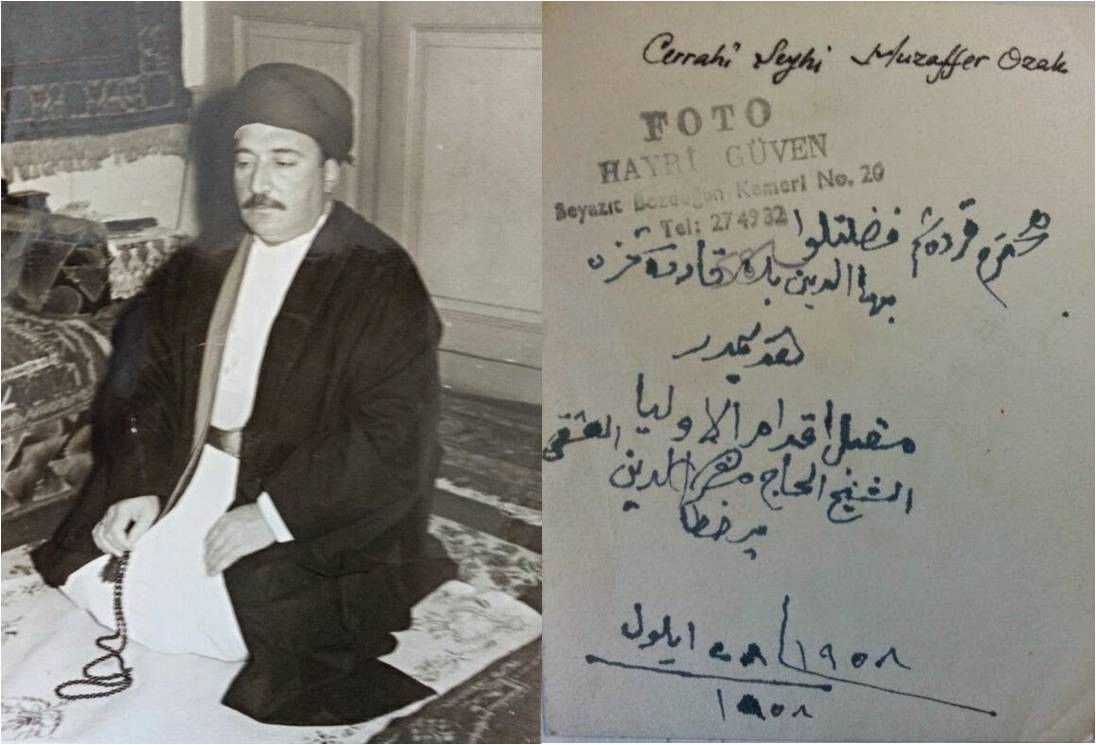 Cerrahî Şeyhi Muzaffer Ozak
FOTO
HAYRİ GÜVEN
Beyazıt Bozdoğan Kemeri No. 20
Tel: 27 49 32
محترم قردشم فضلتلو
بها الدين
تقديمدر
مقبل اقدام الاوليا
الشيخ الحاج مظفر الدين العشقي
پر خطا
ايلول ١٩٥٨
١٩٥٨